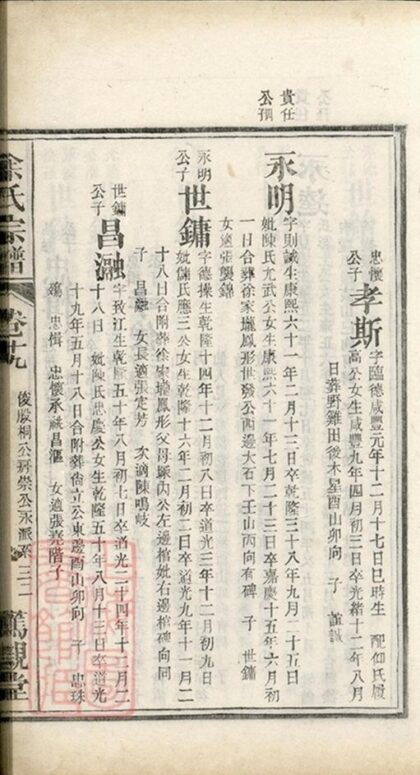 忠懷公子
孝斯
字臨德咸豐元年十二月十七日巳時生 配仰氏履
高公女生咸豐九年四月初三日卒光緒十二年八月
日葬野雞田後木星酉山卯向 子 誼誠
貴任公預
永明
字則誠生康熙六十一年二月十三日卒乾隆三十八年九月二十五日
妣陳氏尤武公女生康熙六十一年七月二十三日卒嘉慶十五年六月初
一日合葬徐家壠鳳形世發公西邊大石下壬山丙向有碑 子 世鏞
女適張襲錦
永明公子
世鏞
字德操生乾隆十四年十二月初八日卒道光三年十二月初九日
妣儲氏應三公女生乾隆十六年二月初二日卒道光九年十一月二
十八日合附葬徐家壠鳳形父母壙內公左邊棺妣右邊棺碑向同
子 昌瀜 女長適張定芳 次適陳鳴岐
世鏞公子
昌瀜
字致江生乾隆五十年八月初七日卒道光二十四年十二月二
十八日 妣陳氏忠慶公女生乾隆五十年八月十三日卒道光
十九年五月十八日合附葬尚立公東邊酉山卯向 子 忠珠
忠楫 忠懷承祧昌漚 女適張堯階子
余氏宗譜
卷十九
後股桐公房崇公永派系
三二
篤親堂